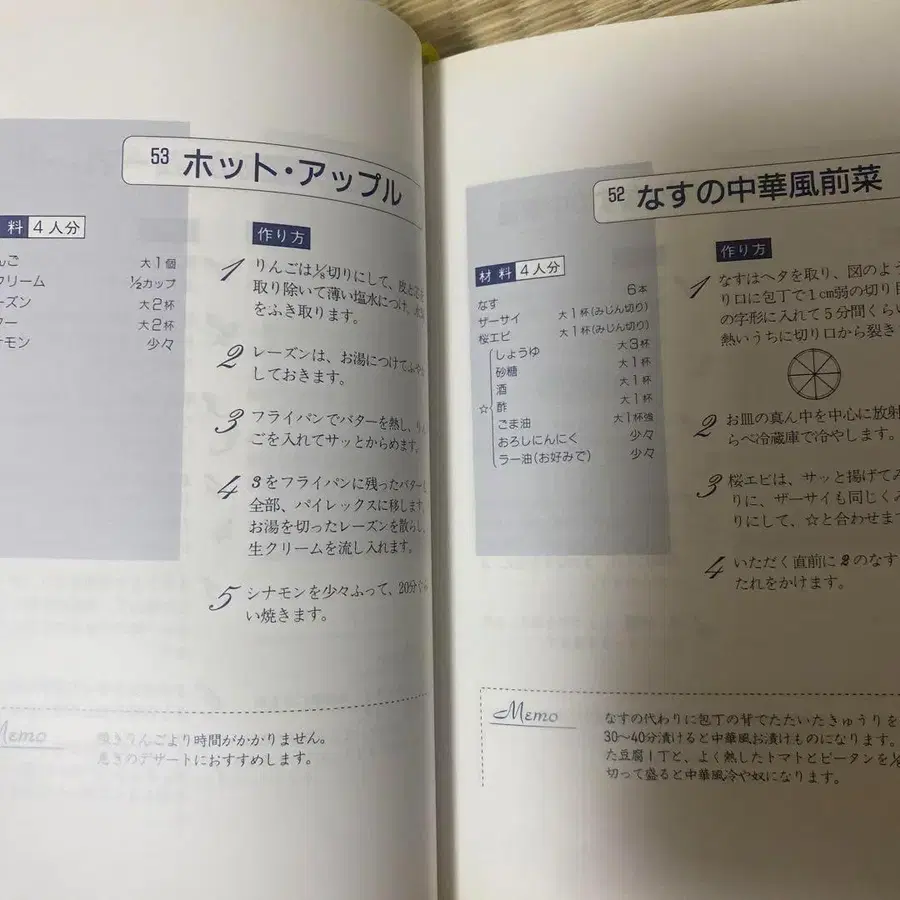 53 ホット・アップル
料 4人分
んご 大1個
クリーム ½カップ
ーズン 大2杯
ター 大2杯
ナモン 少々
作り方
1 りんごは⅛切りにして、皮と芯を
取り除いて薄い塩水につけ、水
をふき取ります。
2 レーズンは、お湯につけてふやか
しておきます。
3 フライパンでバターを熱し、りん
ごを入れてサッとからめます。
4 3をフライパンに残ったバター
全部、パイレックスに移します。
お湯を切ったレーズンを散らし、
生クリームを流し入れます。
5 シナモンを少々ふって、20分ぐら
い焼きます。
Memo
焼きりんごより時間がかかりません。
急ぎのデザートにおすすめします。
52 なすの中華風前菜
材料 4人分
なす 6本
ザーサイ 大1杯(みじん切り)
桜エビ 大1杯(みじん切り)
しょうゆ 大3杯
砂糖 大1杯
酒 大1杯
☆ 酢 大1杯
ごま油 大1杯強
おろしにんにく 少々
ラー油(お好みで) 少々
作り方
1 なすはヘタを取り、図のよう
り口に包丁で1cm弱の切り目
の字形に入れて5分間くらい
熱いうちに切り口から裂き
2 お皿の真ん中を中心に放射
らべ冷蔵庫で冷やします。
3 桜エビは、サッと揚げてみ
りに、ザーサイも同じくみ
りにして、☆と合わせます
4 いただく直前に2のなす
たれをかけます。
Memo
なすの代わりに包丁の背でたたいたきゅうりを
30〜40分漬けると中華風お漬けものになります。
た豆腐1丁と、よく熟したトマトとピータンを⅛
切って盛ると中華風冷や奴になります。